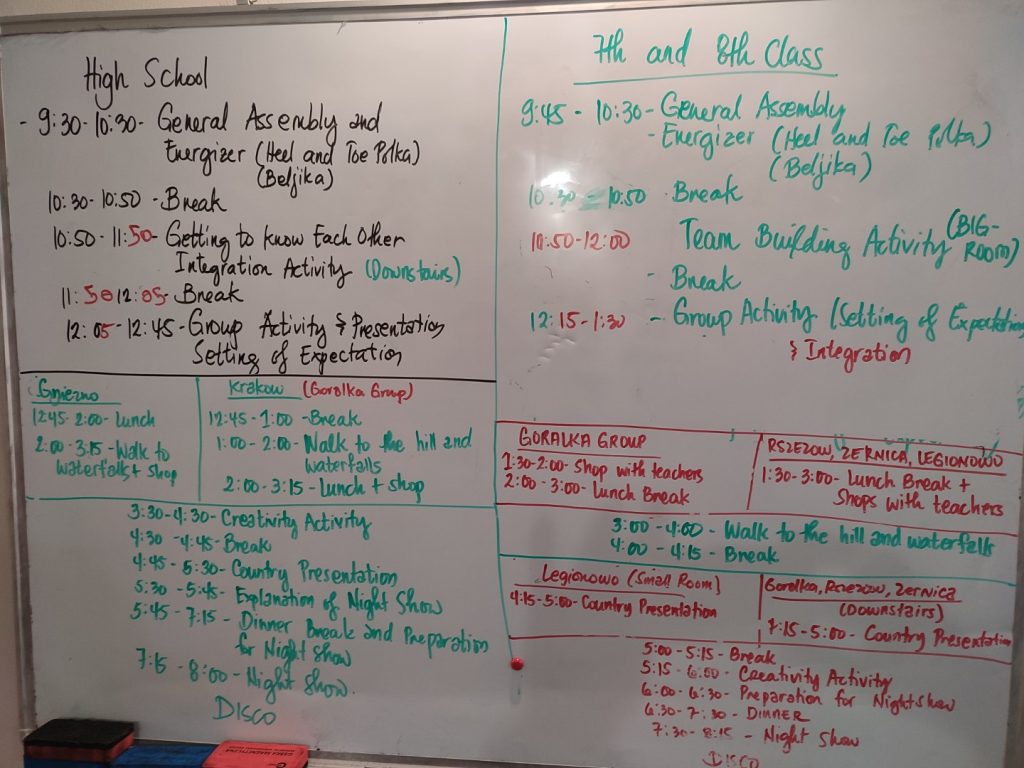 High School
- 9:30-10:30- General Assembly and
Energizer (Heel and Toe Polka)
(Beljika)
10:30-10:50 - Break
10:50-11:50- Getting to know Each Other
Integration Activity (Downstairs)
11:50-12:05- Break
12:05-12:45- Group Activity & Presentation
Setting of Expectation
Gniezno
12:45-2:00- Lunch
2:00-3:15-Walk to
waterfalls + shop
Krakow (Goralka Group)
12:45-1:00-Break
1:00-2:00- Walk to the hill and
waterfalls
2:00-3:15-Lunch + shop
3:30-4:30-Creativity Activity
4:30-4:45-Break
4:45-5:30-Country Presentation
5:30-5:45-Explanation of Night Show
5:45-7:15- Dinner Break and Preparation
for Night Show
7:15-8:00-Night Show.
DISCO
7th and 8th Class
9:45-10:30-General Assembly
- Energizer (Heel and Toe Polka)
(Beljika)
10:30-10:50 - Break
10:50-12:00 Team Building Activity (BIG-
ROOM)
- Break
12:15-1:30 - Group Activity (Setting of Expectation
& Integration
GORALKA GROUP
1:30-2:00- Shop with teachers
2:00-3:00- Lunch Break
RSZEZOW, ZERNICA, LEGIONOWO
1:30-3:00- Lunch Break +
Shops with teachers
3:00-4:00- Walk to the hill and waterfalls
4:00-4:15- Break
Legionowo (Small Room)
4:15-5:00-Country Presentation
Goralka, Rszezow, Zernica
(Downstairs)
7:15-5:00- Country Presentation
5:00-5:15- Break
5:15-6:00- Creativity Activity
6:00-6:30- Preparation for Nightshow
6:30-7:30- DINNER
7:30-8:15- Night Show
DISCO